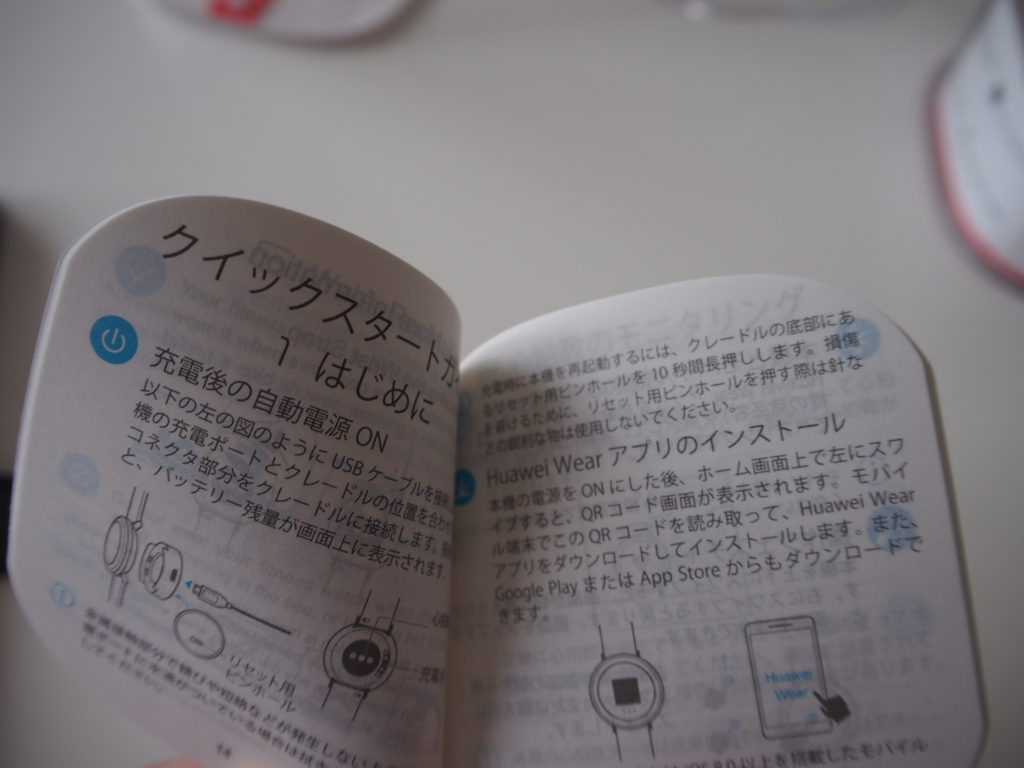 クイックスタートガ
1 はじめに
充電後の自動電源 ON
以下の左の図のように USB ケーブルを
機の充電ポートとクレードルの位置を合わ
コネクタ部分をクレードルに接続します。
と、バッテリー残量が画面上に表示されます。
リセット用
ピンホール
充電
しないよ
してください。
14
充電時に本機を再起動するには、クレードルの底部にあ
るリセット用ピンホールを 10 秒間長押しします。損傷
を避けるために、リセット用ピンホールを押す際は針な
どの鋭利な物は使用しないでください。
Huawei Wear アプリのインストール
本機の電源を ON にした後、ホーム画面上で左にスワ
イプすると、QR コード画面が表示されます。モバイ
ル端末でこの QR コードを読み取って、Huawei Wear
アプリをダウンロードしてインストールします。また、
Google Play または App Store からもダウンロードで
きます。
Huawei
Wear
8.0 以上を搭載したモバイル